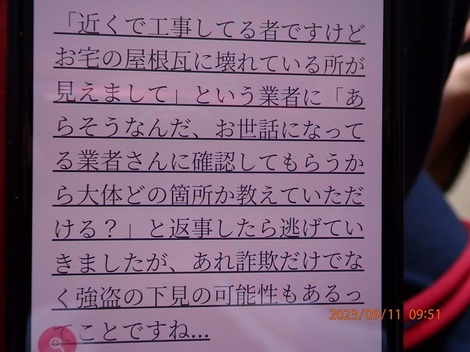 「近くで工事してる者ですけど
お宅の屋根瓦に壊れている所が
見えまして」という業者に「あ
らそうなんだ、お世話になって
る業者さんに確認してもらうか
ら大体どの箇所か教えていただ
ける？」と返事したら逃げてい
きましたが、あれ詐欺だけでな
く強盗の下見の可能性もあるっ
てことですね...
2023/09/11 09:51